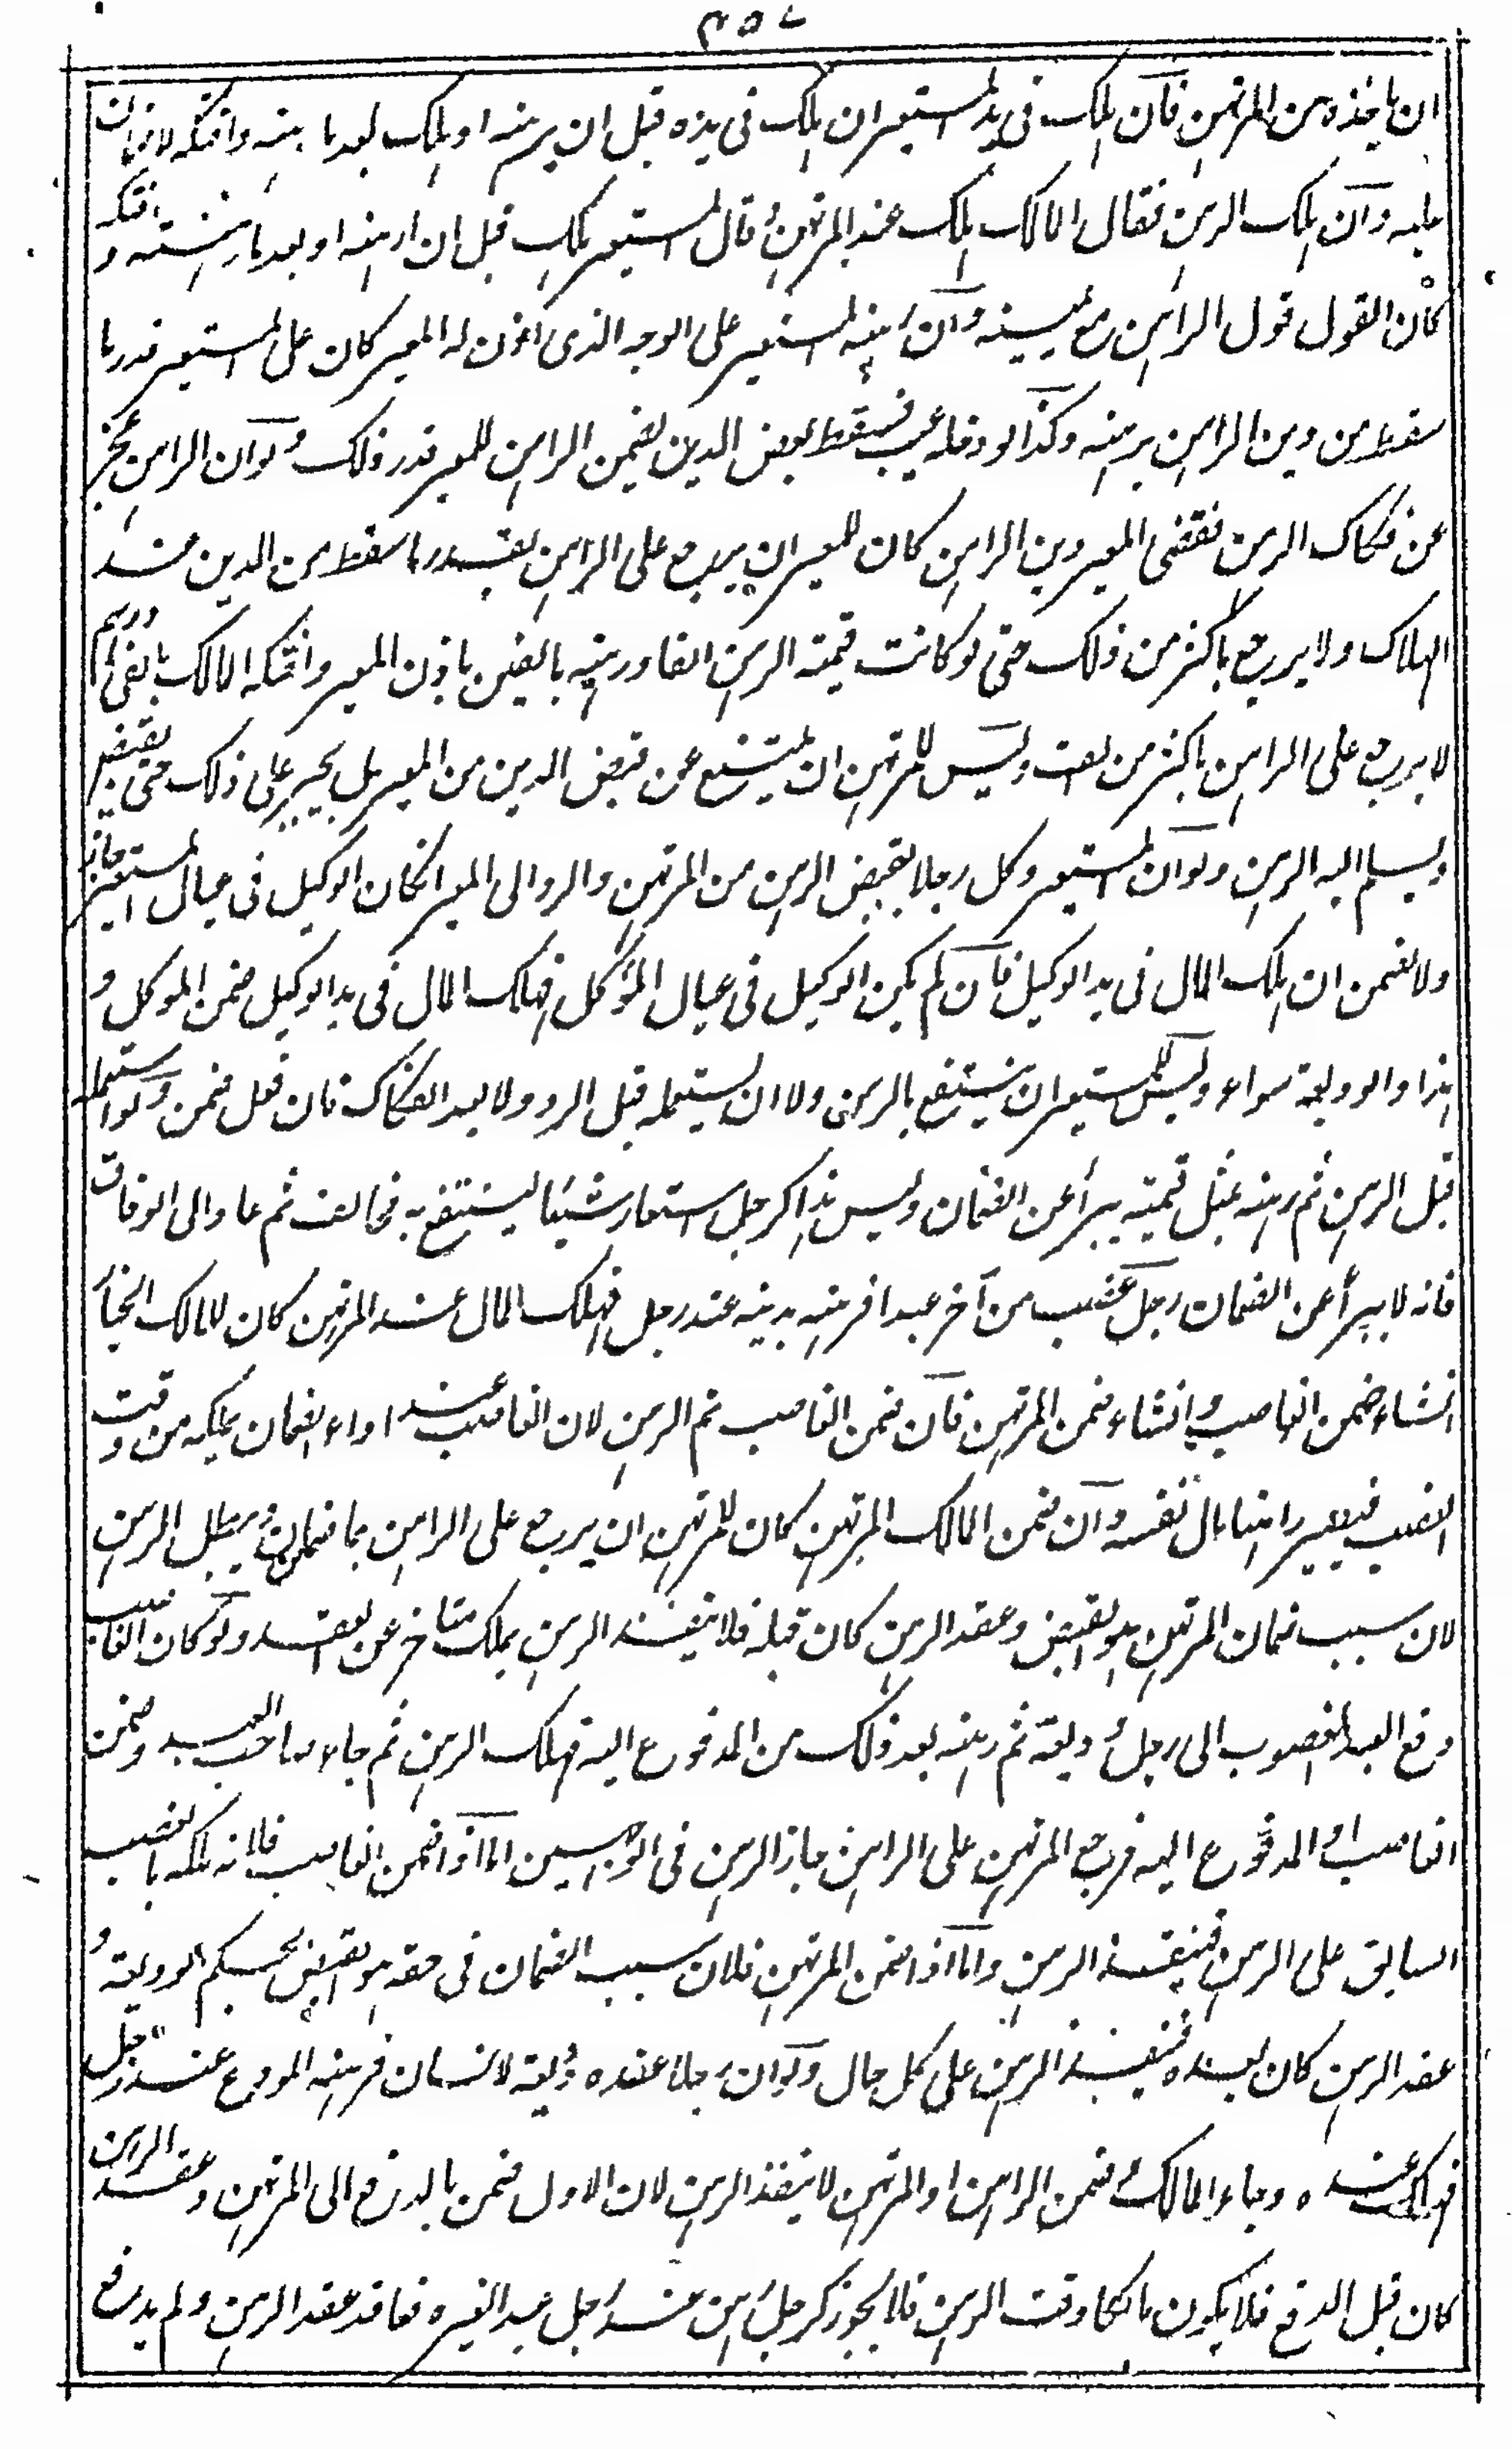 ٤٥٧
ان ياخذه من المرتهن فان هلك فى يد المستعير ان هلك فى يده قبل ان يرهنه او هلك بعد ما رهنه وافتكه لا ضمان
عليه وان هلك الرهن فقال المالك هلك عند المرتهن وقال المستعير هلك قبل ان ارهنه او بعد ما رهنته و افتكه
كان القول قول الراهن مع يمينه وان رهنه المستعير على الوجه الذى اذن له المعير كان على المستعير قدر ما
سقط من دين الراهن برهنه وكذا لو دخله عيب فسقط بعض الدين يضمن الراهن للمعير قدر ذلك ولو ان الراهن عجز
عن فكاك الرهن فقضى المعير دين الراهن كان للمعير ان يرجع على الراهن بقدر ما سقط من الدين عند
الهلاك ولا يرجع باكثر من ذلك حتى لو كانت قيمة الرهن الفا ورهنه بالفين باذن المعير وافتكه المالك بالفى درهم
لا يرجع على الراهن باكثر من الف وليس للمرتهن ان يمتنع عن قبض الدين من المعير بل يجبر على ذلك حتى يقبض
ويسلم اليه الرهن ولو ان المستعير وكل رجلا بقبض الرهن من المرتهن والرد الى المعير انكان الوكيل فى عيال المستعير جاز
ولا يضمن ان هلك المال فى يد الوكيل فان لم يكن الوكيل فى عيال المؤكل فهلك المال فى يد الوكيل ضمن الموكل و
هذا والوديعة سواء وليس للمستعير ان ينتفع بالرهن ولا ان يستعمله قبل الرد ولا بعد الفكاك فان فعل ضمن ولو استعمله
قبل الرهن ثم رهنه بمثل قيمته يبرأ عن الضمان وليس هذا كرجل استعار شيئا لينتفع به فخالف ثم عاد الى الوفاق
فانه لا يبرأ عن الضمان رجل غصب من آخر عبدا فرهنه بدينه عند رجل فهلك المال عند المرتهن كان للمالك الخيار
انشاء ضمن الغاصب وانشاء ضمن المرتهن فان ضمن الغاصب تم الرهن لان الغاصب عند اداء الضمان يملكه من وقت
الغصب فيصير راهنا مال نفسه وان ضمن المالك المرتهن كان للمرتهن ان يرجع على الراهن بما ضمن ويبطل الرهن
لان سبب ضمان المرتهن هو القبض وعقد الرهن كان قبله فلا ينفذ الرهن بملك متاخر عن العقد ولو كان الغاصب
دفع العبد المغصوب الى رجل وديعة ثم رهنه بعد ذلك من المدفوع اليه فهلك الرهن ثم جاء صاحب العبد وضمن
الغاصب او المدفوع اليه فرجع المرتهن على الراهن جاز الرهن فى الوجهين اما اذا ضمن الغاصب فلانه ملكه بالغصب
السابق على الرهن فينفذ الرهن واما اذا ضمن المرتهن فلان سبب الضمان فى حقه هو القبض بحكم الوديعة و
عقد الرهن كان بعده فينفذ الرهن على كل حال ولو ان رجلا عنده وديعة لانسان فرهنه المودع عند رجل
فهلك عنده وجاء المالك وضمن الراهن او المرتهن لا ينفذ الرهن لان الاول ضمن بالدفع الى المرتهن وعقد الرهن
كان قبل الدفع فلا يكون مالكا وقت الرهن فلا يجوز كرجل رهن عند رجل عبد الغيره فعاقد عقد الرهن ولم يدفع